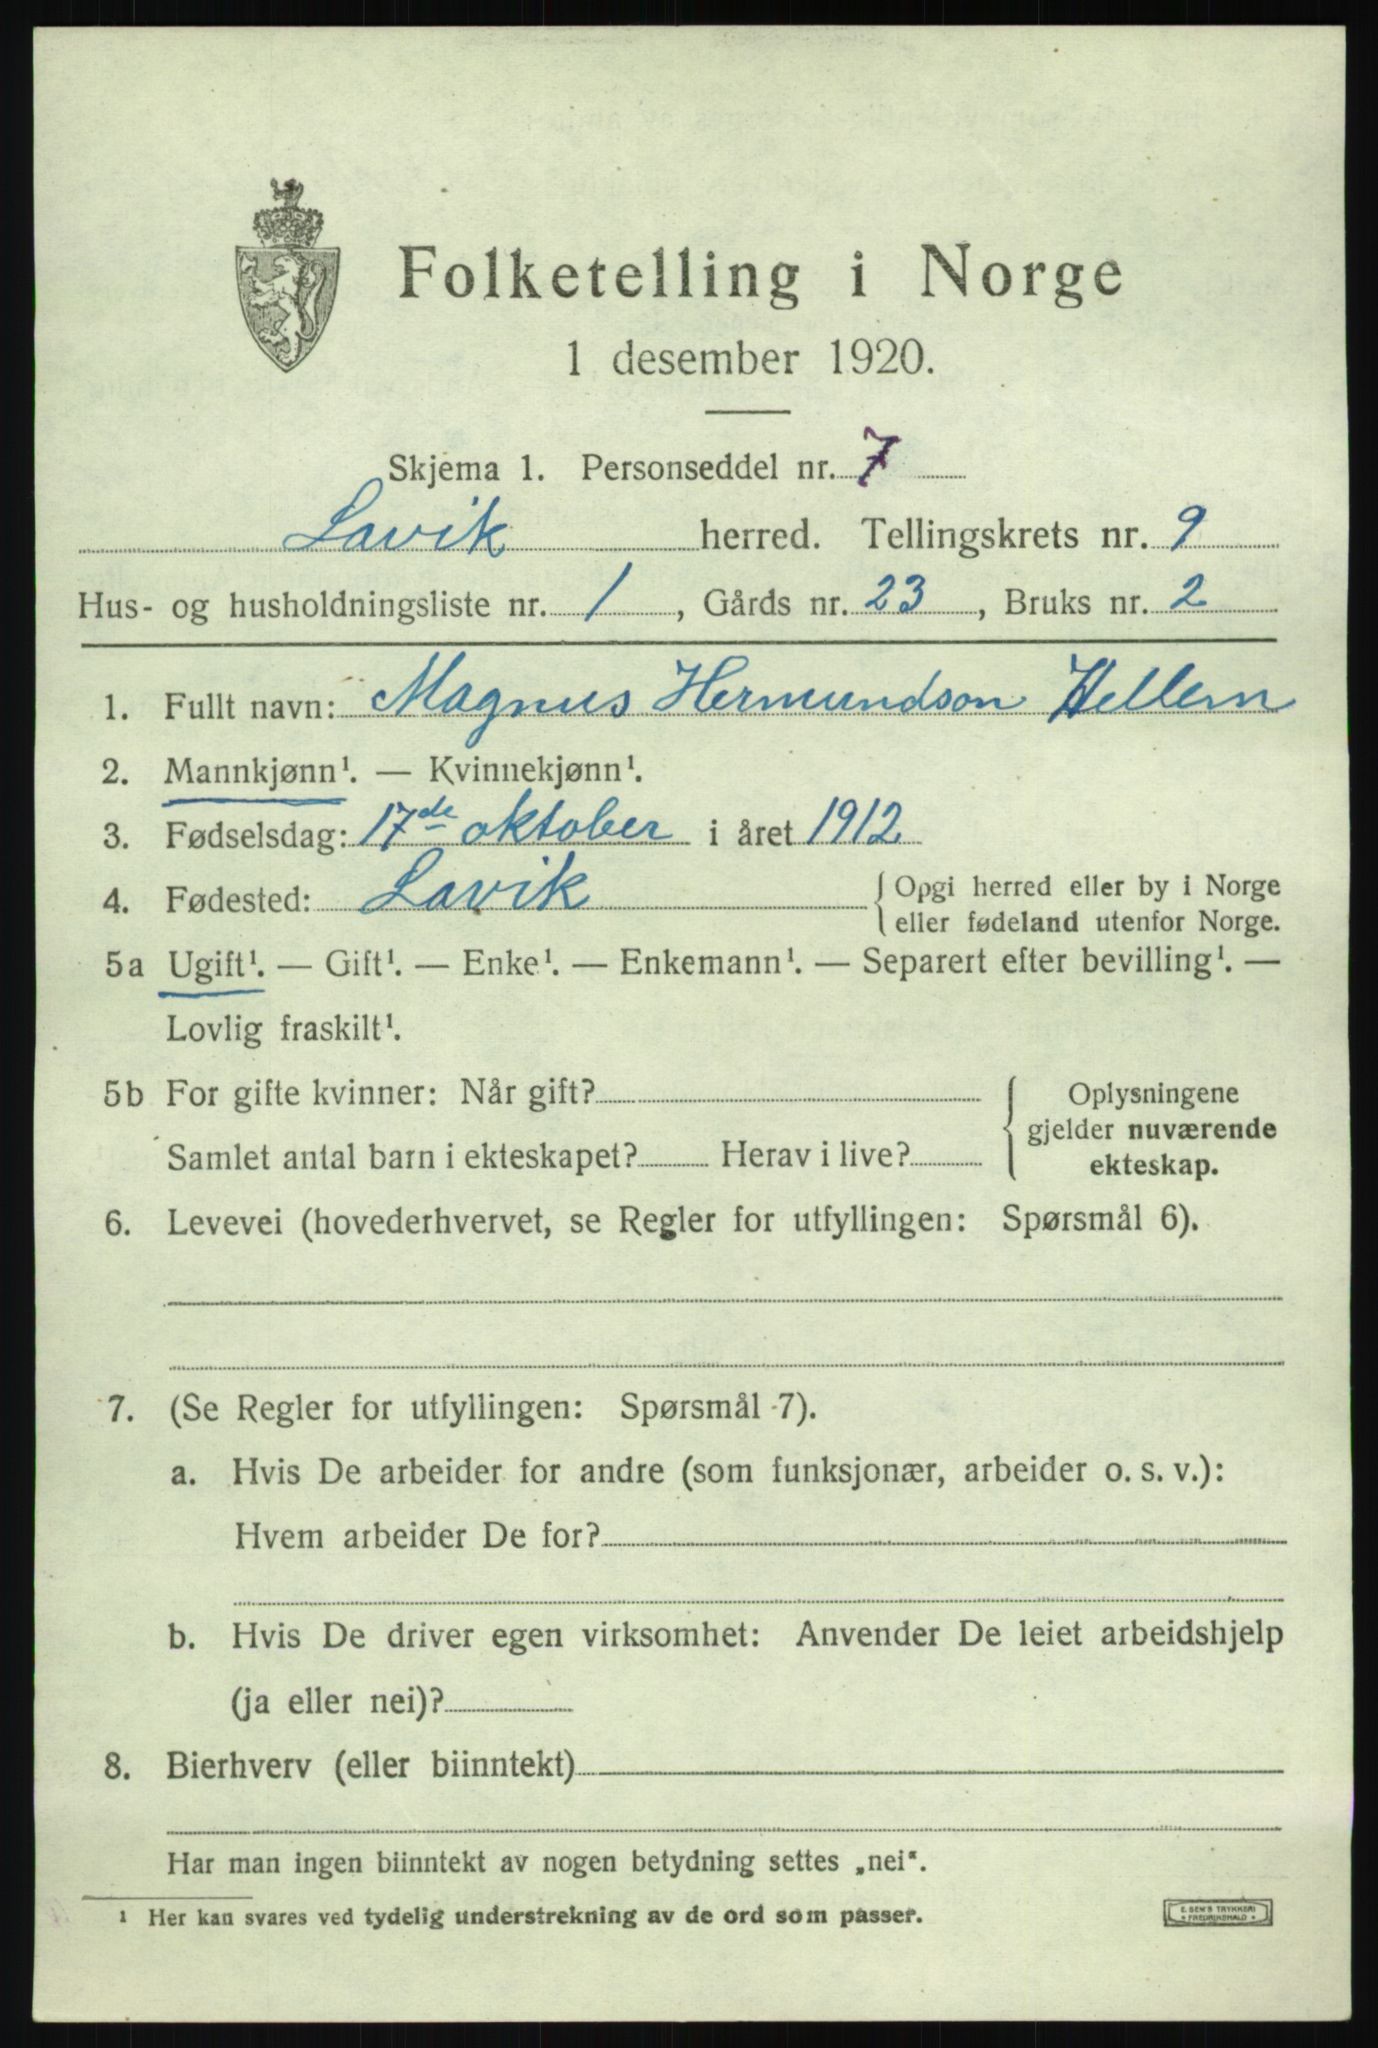 Folketelling i Norge
1 desember 1920.
Skjema 1. Personseddel nr. 7
Lavik herred. Tellingskrets nr. 9
Hus- og husholdningsliste nr. 1, Gårds nr. 23, Bruks nr. 2
1. Fullt navn: Magnus Hermundson Hellem
2. Mannkjønn¹. — Kvinnekjønn¹.
3. Fødselsdag: 17de oktober i året 1912
4. Fødested: Lavik { Opgi herred eller by i Norge
eller fødeland utenfor Norge.
5a Ugift¹. — Gift¹. — Enke¹. — Enkemann¹. — Separert efter bevilling¹. —
Lovlig fraskilt¹.
5b For gifte kvinner: Når gift?
Samlet antal barn i ekteskapet? Herav i live?
{ Oplysningene
gjelder nuværende
ekteskap.
6. Levevei (hovederhvervet, se Regler for utfyllingen: Spørsmål 6).
7. (Se Regler for utfyllingen: Spørsmål 7).
a. Hvis De arbeider for andre (som funksjonær, arbeider o. s. v.):
Hvem arbeider De for?
b. Hvis De driver egen virksomhet: Anvender De leiet arbeidshjelp
(ja eller nei)?
8. Bierhverv (eller biinntekt)
Har man ingen biinntekt av nogen betydning settes „nei".
¹ Her kan svares ved tydelig understrekning av de ord som passer.
E. SEM'S TRYKKERI
FREDRIKSHALD